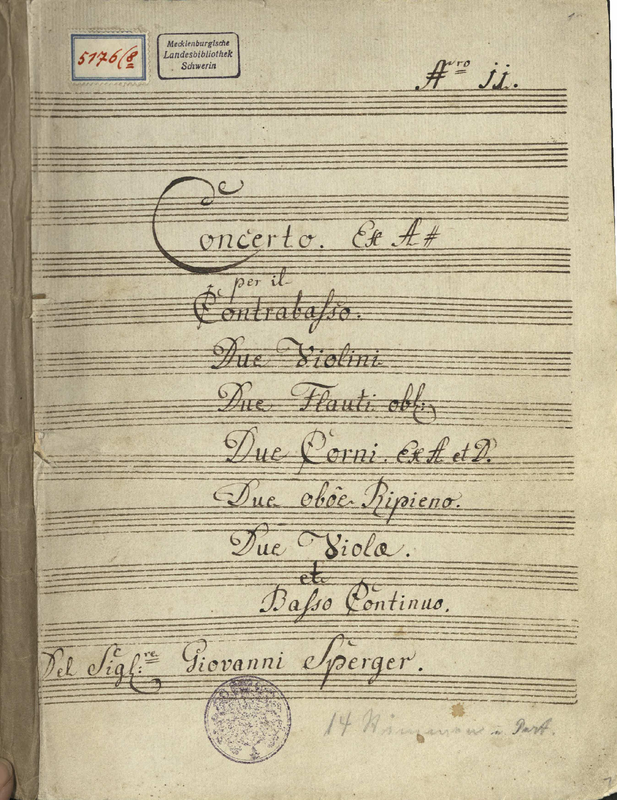 5176/8
Mecklenburgische
Landesbibliothek
Schwerin
Nro 11.
Concerto. Ex A#
per il
Contrabasso.
Due Violini
Due Flauti obl:
Due Corni. Ex A et D.
Due oboe Ripieno.
Due Violæ.
et
Basso Continuo.
Del Sigl:re Giovanni Sperger.
14 Stimmen u. Part.